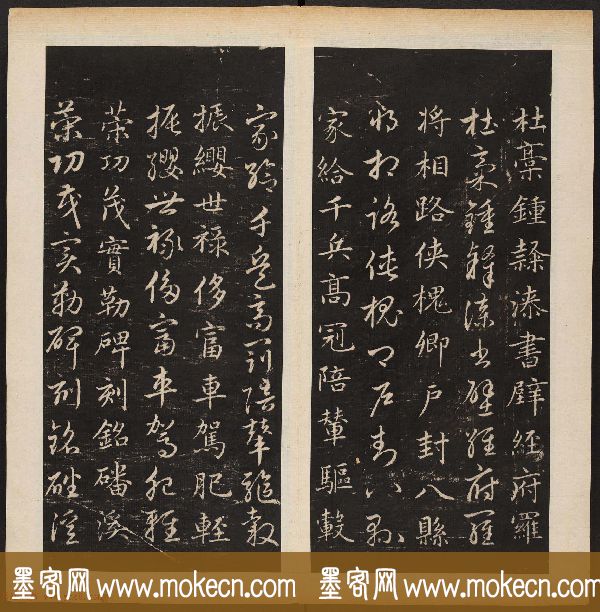 杜稾鍾隸漆書壁經府羅
杜稾鍾隸漆書壁經府羅
將相路俠槐卿戶封八縣
將相路俠槐卿戶封八縣
家給千兵高冠陪輦驅轂
家給千兵高冠陪輦驅轂
振纓世祿侈富車駕肥輕
振纓世祿侈富車駕肥輕
策功茂實勒碑刻銘磻溪
策功茂實勒碑刻銘磻溪
墨客网 www.mokecn.com 墨客网 www.mokecn.com